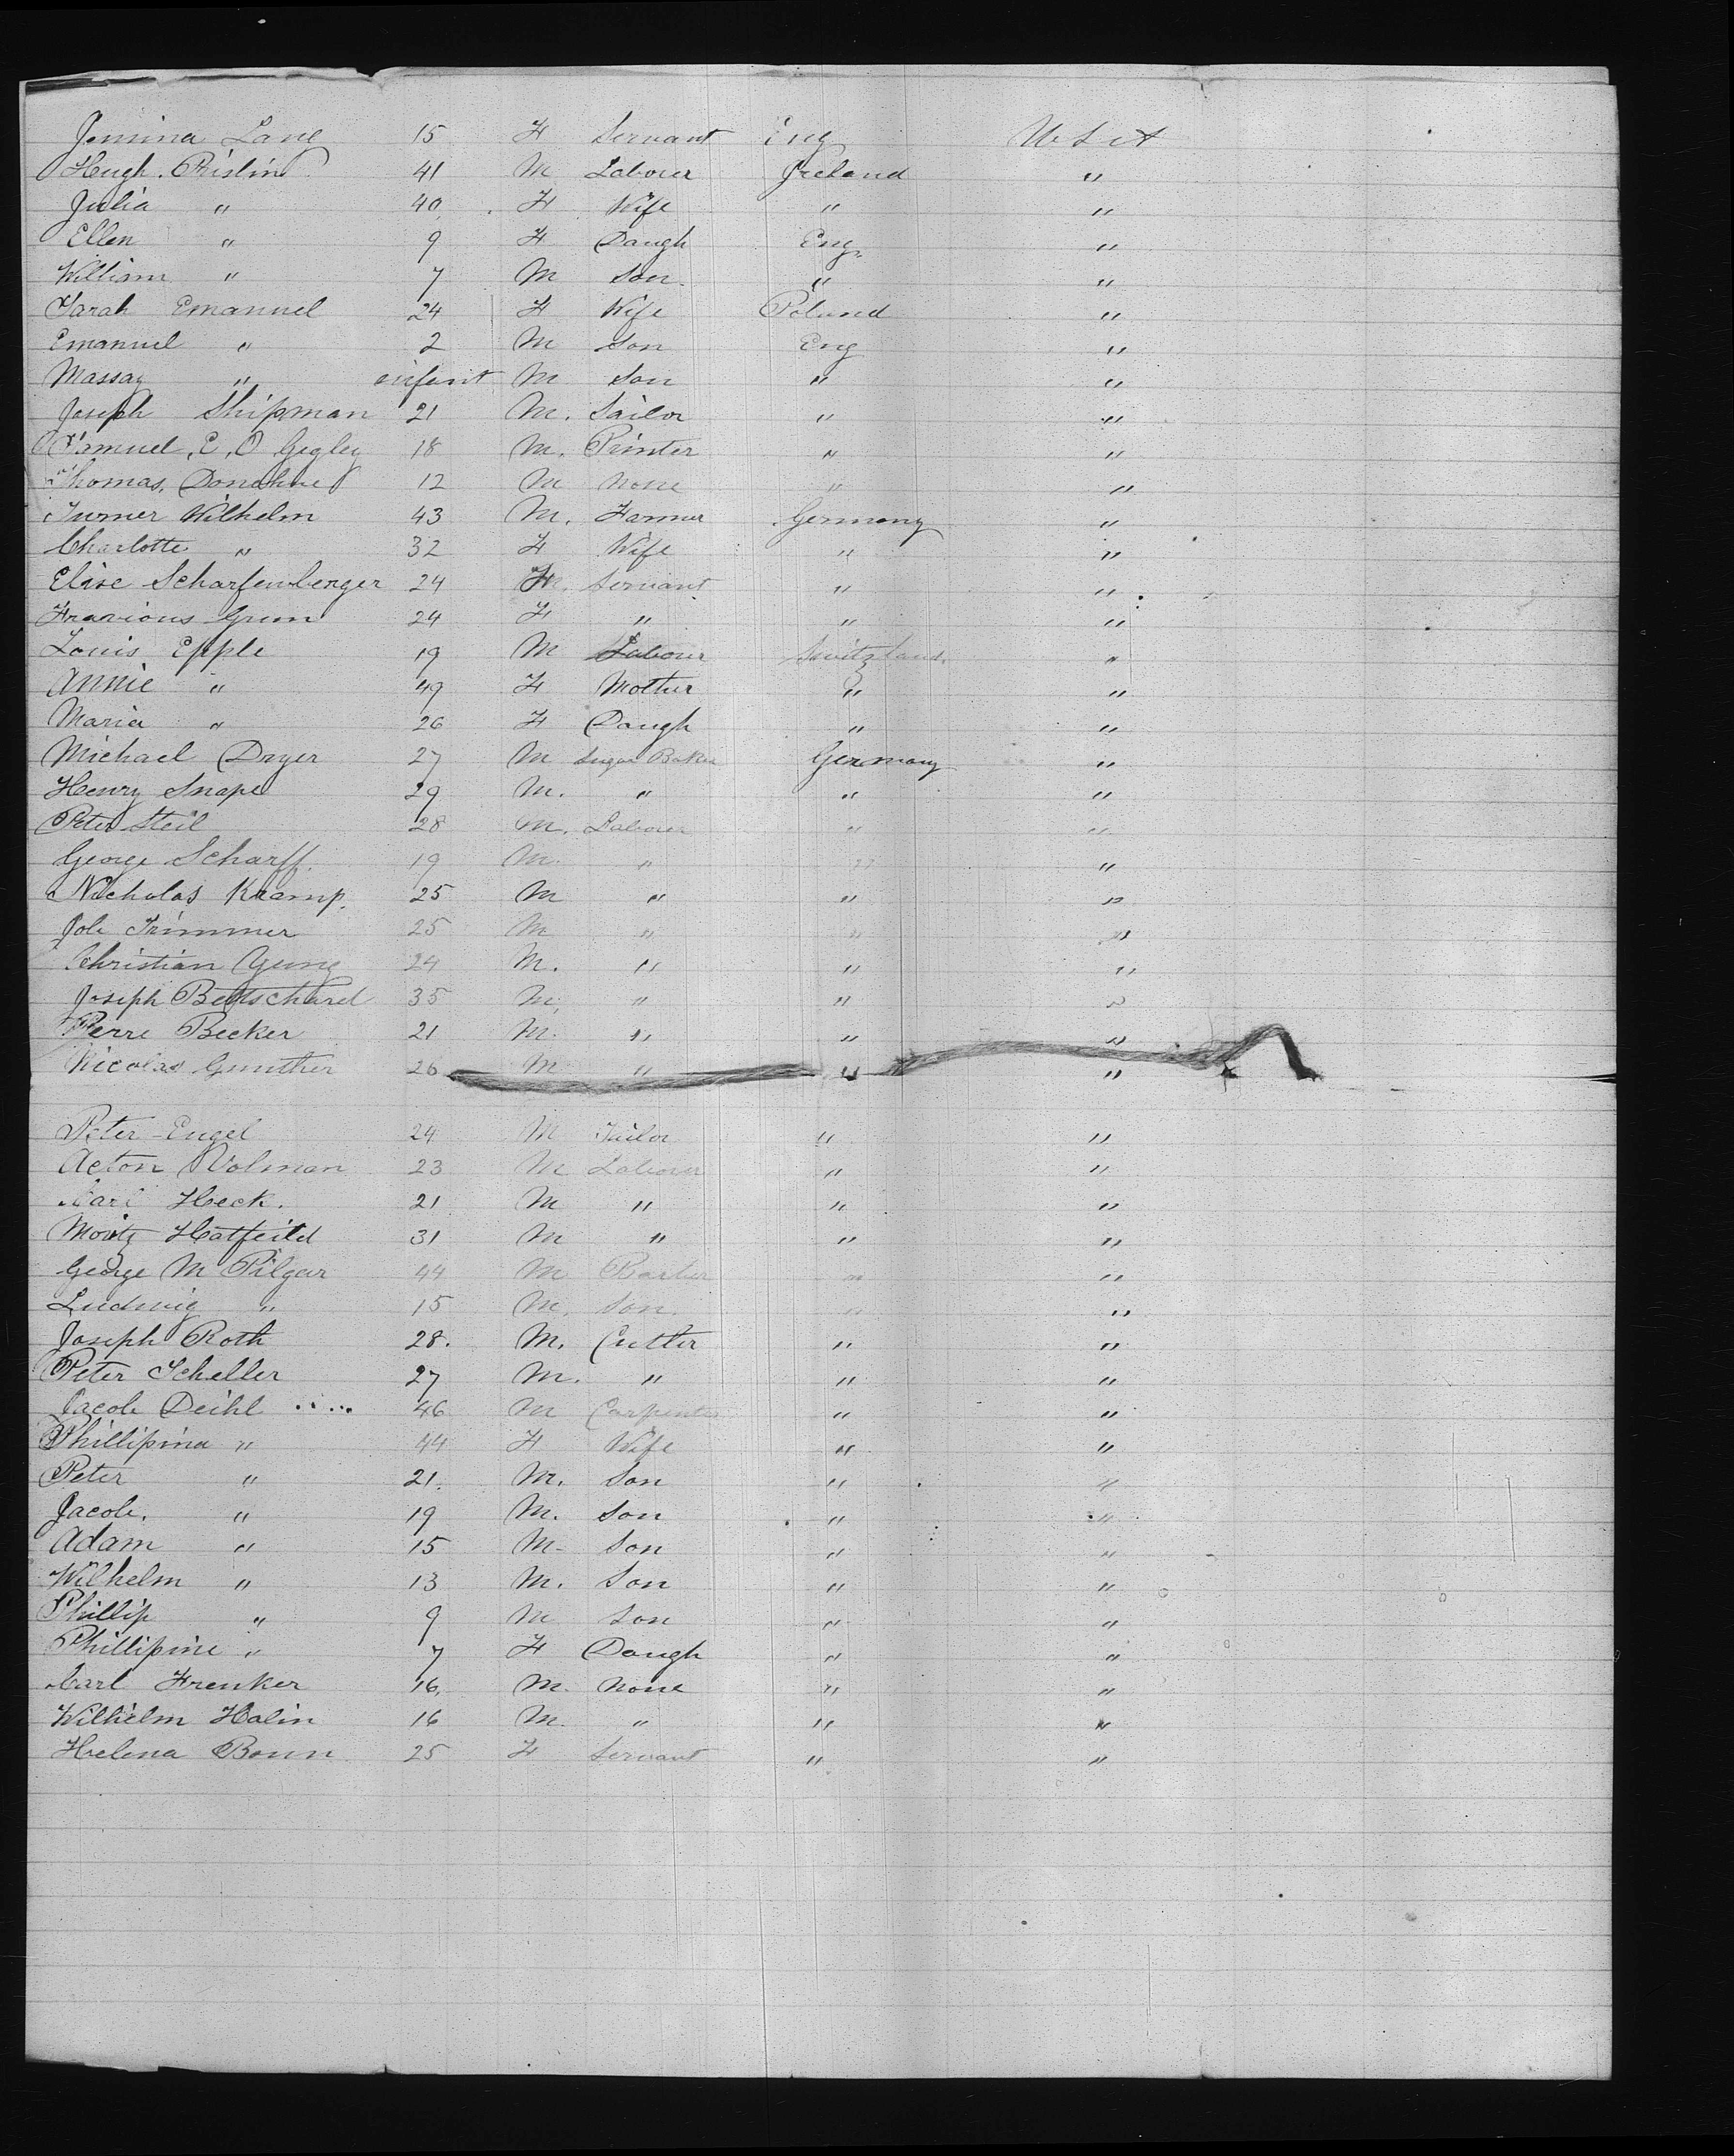 Jemima Lane 15 F Servant Eng U S A
Hugh. Rislin 41 M Laborer Ireland "
Julia " 40 F Wife " "
Ellen " 9 F Daugh Eng "
William " 7 M Son " "
Sarah Emanuel 24 F Wife Poland "
Emanuel " 2 M Son Eng "
Massay " infant M Son " "
Joseph Shipman 21 M. Sailor " "
Samuel, E, O Gegley 18 M. Printer " "
Thomas, Donahue 12 M None " "
Turner Wilhelm 43 M. Farmer Germany "
Charlotte " 32 F Wife " "
Elise Scharfenberger 24 F Servant " "
Fravious Grun 24 F " " "
Louis Epple 19 M Laborer Switzland. "
Annie " 49 F Mother " "
Maria " 26 F Daugh " "
Michael Dryer 27 M Sugar Baker Germany "
Henry Snape 29 M. " " "
Peter Steil 28 M. Laborer " "
George Scharff. 19 M. " " "
Nicholas Kramp. 25 M " " "
Job Trimmer 25 M " " "
Christian Yung 24 M. " " "
Joseph Bettschard 35 M. " " "
Pierre Becker 21 M. " " "
Nicolas Gunther 26 M " " "
Peter Engel 24 M Tailor " "
Acton Volman 23 M Laborer " "
Carl Heck. 21 M " " "
Moritz Hatfeild 31 M " " "
George M Pilgar 44 M Barber " "
Ludwig " 15 M. Son. " "
Joseph Roth 28. M. Cutler " "
Peter Scheller 27 M. " " "
Jacob Deihl 46 M Carpenter " "
Phillipina " 44 F Wife " "
Peter " 21. M. Son " "
Jacob. " 19 M. Son " "
Adam " 15 M- Son " "
Wilhelm " 13 M. Son " "
Phillip " 9 M Son " "
Phillipine " 7 F Daugh " "
Carl Frenker 16. M. None " "
Wilhelm Halin 16 M. " " "
Helena Bonn 25 F Servant " "